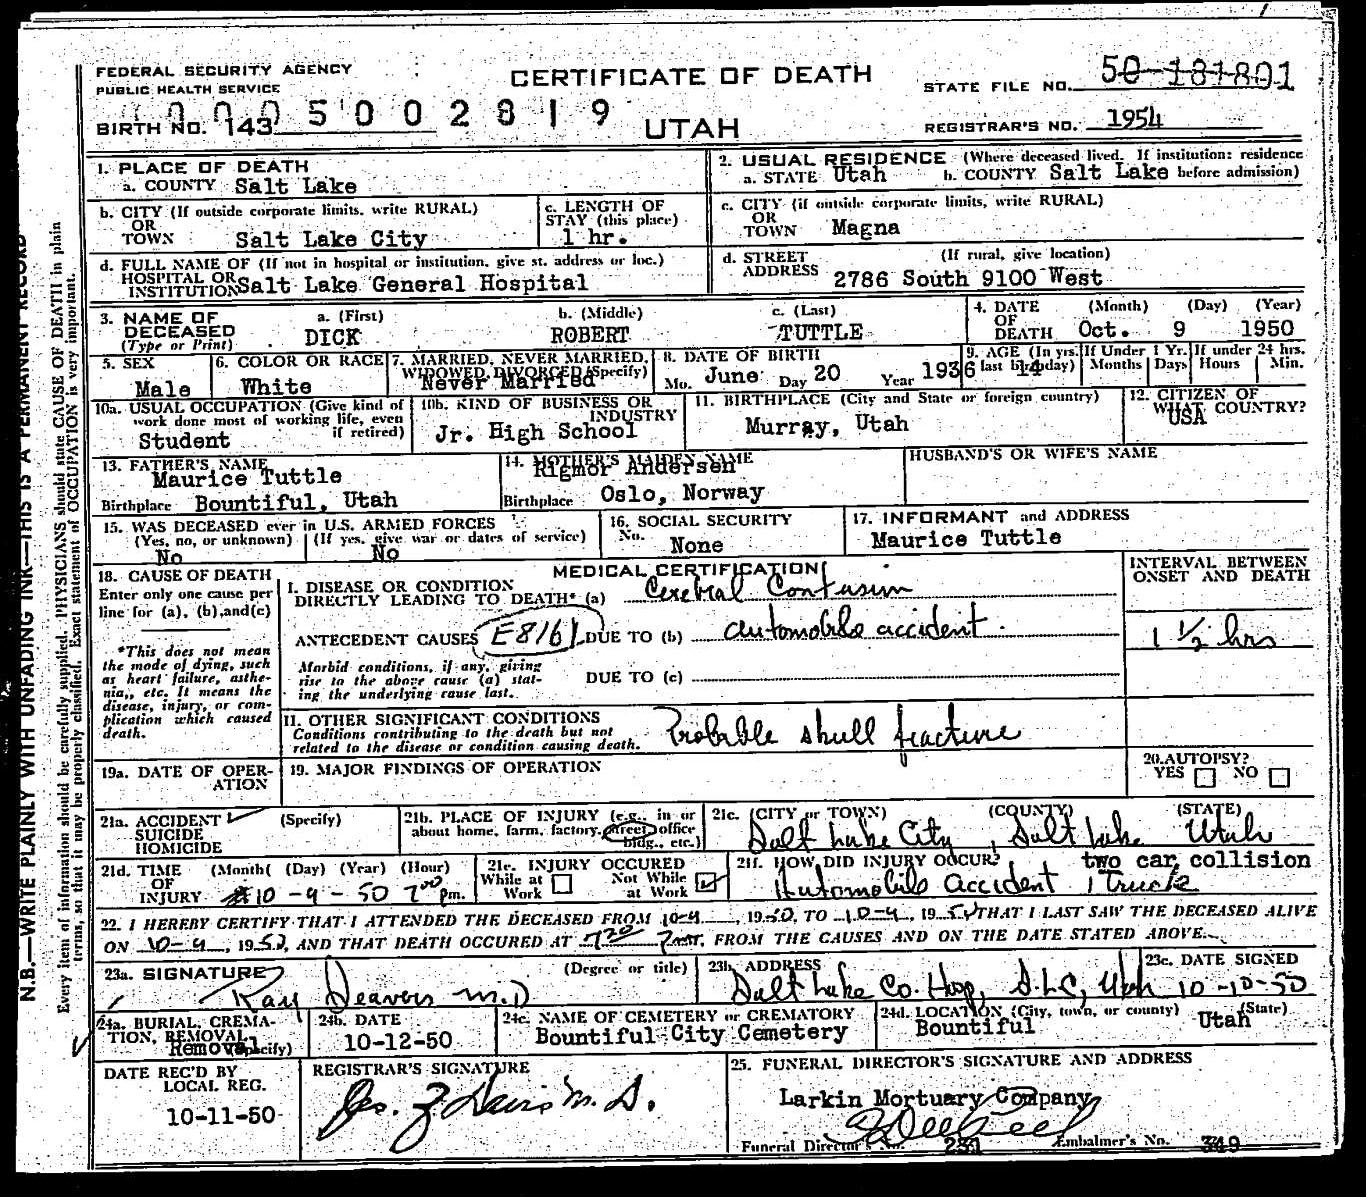 FEDERAL SECURITY AGENCY
PUBLIC HEALTH SERVICE
CERTIFICATE OF DEATH
STATE FILE NO. 50-181801
BIRTH NO. 143
0005002819
UTAH
REGISTRAR'S NO. 1954
1. PLACE OF DEATH
a. COUNTY Salt Lake
2. USUAL RESIDENCE (Where deceased lived. If institution: residence before admission)
a. STATE Utah b. COUNTY Salt Lake
b. CITY (If outside corporate limits, write RURAL)
OR
TOWN Salt Lake City
c. LENGTH OF
STAY (this place)
1 hr.
c. CITY (if outside corporate limits, write RURAL)
OR
TOWN Magna
d. FULL NAME OF (If not in hospital or institution, give st. address or loc.)
HOSPITAL OR
INSTITUTION Salt Lake General Hospital
d. STREET (If rural, give location)
ADDRESS 2786 South 9100 West
3. NAME OF a. (First) b. (Middle) c. (Last)
DECEASED
(Type or Print) DICK ROBERT TUTTLE
4. DATE (Month) (Day) (Year)
OF
DEATH Oct. 9 1950
5. SEX
Male
6. COLOR OR RACE
White
7. MARRIED, NEVER MARRIED,
WIDOWED, DIVORCED (Specify)
Never Married
8. DATE OF BIRTH
Mo. June Day 20 Year 1936
9. AGE (In yrs. last birthday) 14
If Under 1 Yr. Months Days
If under 24 hrs. Hours Min.
10a. USUAL OCCUPATION (Give kind of
work done most of working life, even
if retired)
Student
10b. KIND OF BUSINESS OR
INDUSTRY
Jr. High School
11. BIRTHPLACE (City and State or foreign country)
Murray, Utah
12. CITIZEN OF
WHAT COUNTRY?
USA
13. FATHER'S NAME
Maurice Tuttle
Birthplace Bountiful, Utah
14. MOTHER'S MAIDEN NAME
Rigmor Andersen
Birthplace Oslo, Norway
HUSBAND'S OR WIFE'S NAME
15. WAS DECEASED ever in U.S. ARMED FORCES
(Yes, no, or unknown) (If yes, give war or dates of service)
No No
16. SOCIAL SECURITY
No.
None
17. INFORMANT and ADDRESS
Maurice Tuttle
18. CAUSE OF DEATH
Enter only one cause per
line for (a), (b), and (c)
*This does not mean
the mode of dying, such
as heart failure, asthe-
nia,, etc. It means the
disease, injury, or com-
plication which caused
death.
MEDICAL CERTIFICATION
I. DISEASE OR CONDITION
DIRECTLY LEADING TO DEATH* (a) Cerebral Contusion
ANTECEDENT CAUSES E8161 DUE TO (b) automobile accident.
Morbid conditions, if any, giving
rise to the above cause (a) stat-
ing the underlying cause last.
DUE TO (c)
INTERVAL BETWEEN
ONSET AND DEATH
1 1/2 hrs
II. OTHER SIGNIFICANT CONDITIONS
Conditions contributing to the death but not
related to the disease or condition causing death.
Probable skull fracture
19a. DATE OF OPER-
ATION
19. MAJOR FINDINGS OF OPERATION
20. AUTOPSY?
YES NO
21a. ACCIDENT (Specify)
SUICIDE
HOMICIDE
21b. PLACE OF INJURY (e.g., in or
about home, farm, factory, street, office
bldg., etc.)
21c. (CITY or TOWN) (COUNTY) (STATE)
Salt Lake City, Salt Lake Utah
21d. TIME (Month) (Day) (Year) (Hour)
OF
INJURY 10-9-50 7:00 pm.
21e. INJURY OCCURED
While at Work
Not While at Work
21f. HOW DID INJURY OCCUR? two car collision
Automobile accident 1 Truck
22. I HEREBY CERTIFY THAT I ATTENDED THE DECEASED FROM 10-9, 1950, TO 10-9, 1950 THAT I LAST SAW THE DECEASED ALIVE
ON 10-9, 1950, AND THAT DEATH OCCURED AT 7:20 P.m., FROM THE CAUSES AND ON THE DATE STATED ABOVE.
23a. SIGNATURE (Degree or title)
Ray Deavers M.D
23b. ADDRESS
Salt Lake Co. Hosp, S.L.C, Utah
23c. DATE SIGNED
10-10-50
24a. BURIAL, CREMA-
TION, REMOVAL
(Specify)
Removal
24b. DATE
10-12-50
24c. NAME OF CEMETERY or CREMATORY
Bountiful City Cemetery
24d. LOCATION (City, town, or county) (State)
Bountiful Utah
DATE REC'D BY
LOCAL REG.
10-11-50
REGISTRAR'S SIGNATURE
25. FUNERAL DIRECTOR'S SIGNATURE AND ADDRESS
Larkin Mortuary Company
Funeral Director's No. 231 Embalmer's No. 349
N.B.—WRITE PLAINLY WITH UNFADING INK—THIS IS A PERMANENT RECORD
Every item of information should be carefully supplied. PHYSICIANS should state CAUSE OF DEATH in plain
terms, so that it may be properly classified. Exact statement of OCCUPATION is very important.